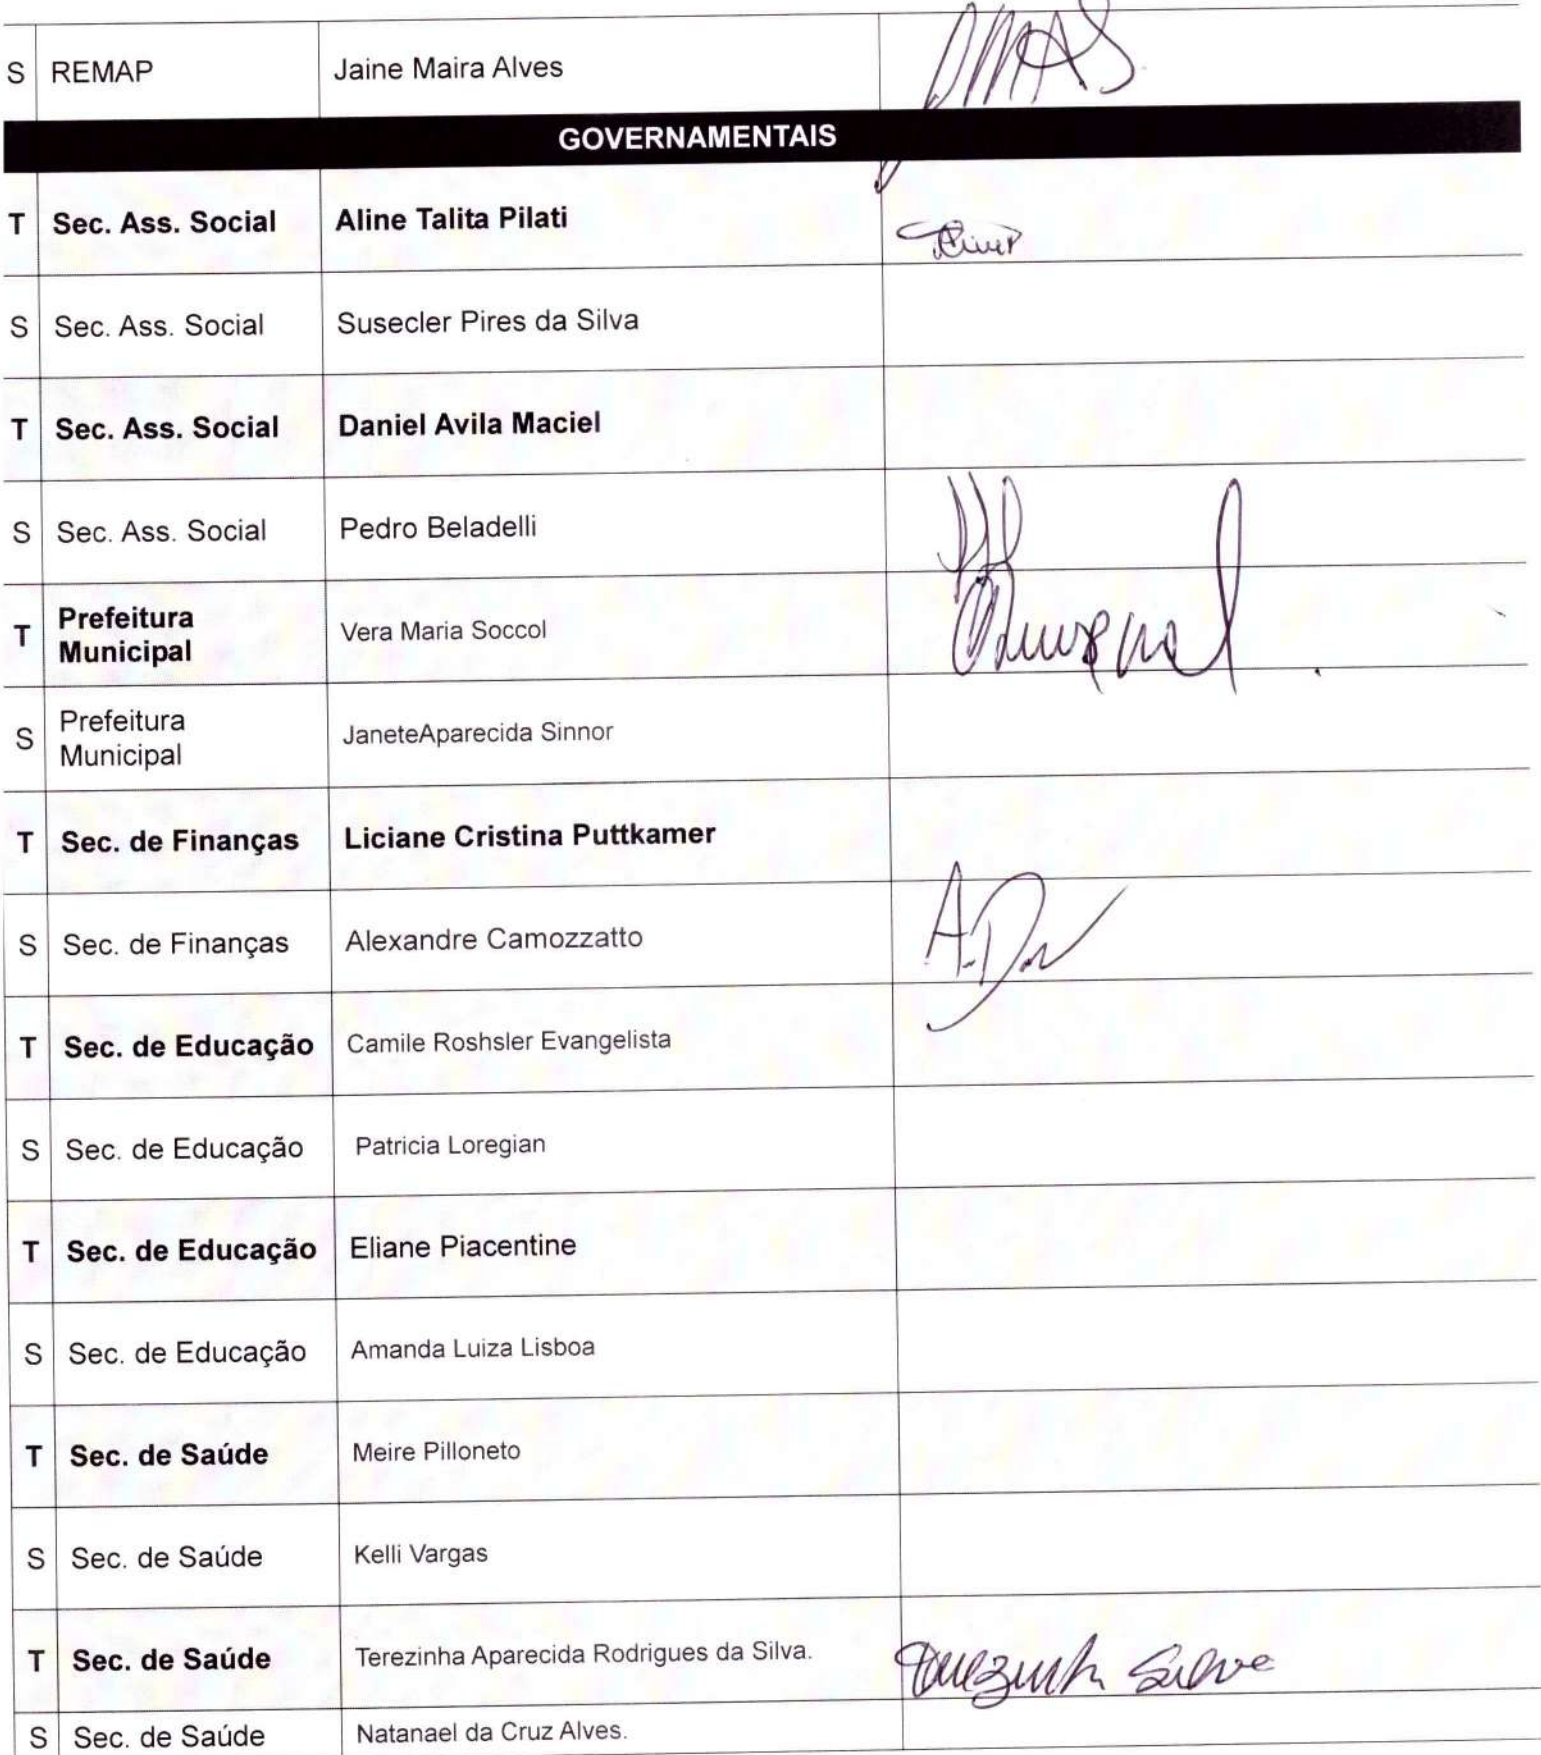 S REMAP Jaine Maira Alves
GOVERNAMENTAIS
T Sec. Ass. Social Aline Talita Pilati
S Sec. Ass. Social Susecler Pires da Silva
T Sec. Ass. Social Daniel Avila Maciel
S Sec. Ass. Social Pedro Beladelli
T Prefeitura
Municipal Vera Maria Soccol
S Prefeitura
Municipal JaneteAparecida Sinnor
T Sec. de Finanças Liciane Cristina Puttkamer
S Sec. de Finanças Alexandre Camozzatto
T Sec. de Educação Camile Roshsler Evangelista
S Sec. de Educação Patricia Loregian
T Sec. de Educação Eliane Piacentine
S Sec. de Educação Amanda Luiza Lisboa
T Sec. de Saúde Meire Pilloneto
S Sec. de Saúde Kelli Vargas
T Sec. de Saúde Terezinha Aparecida Rodrigues da Silva. Terezinha Silva
S Sec. de Saúde Natanael da Cruz Alves.